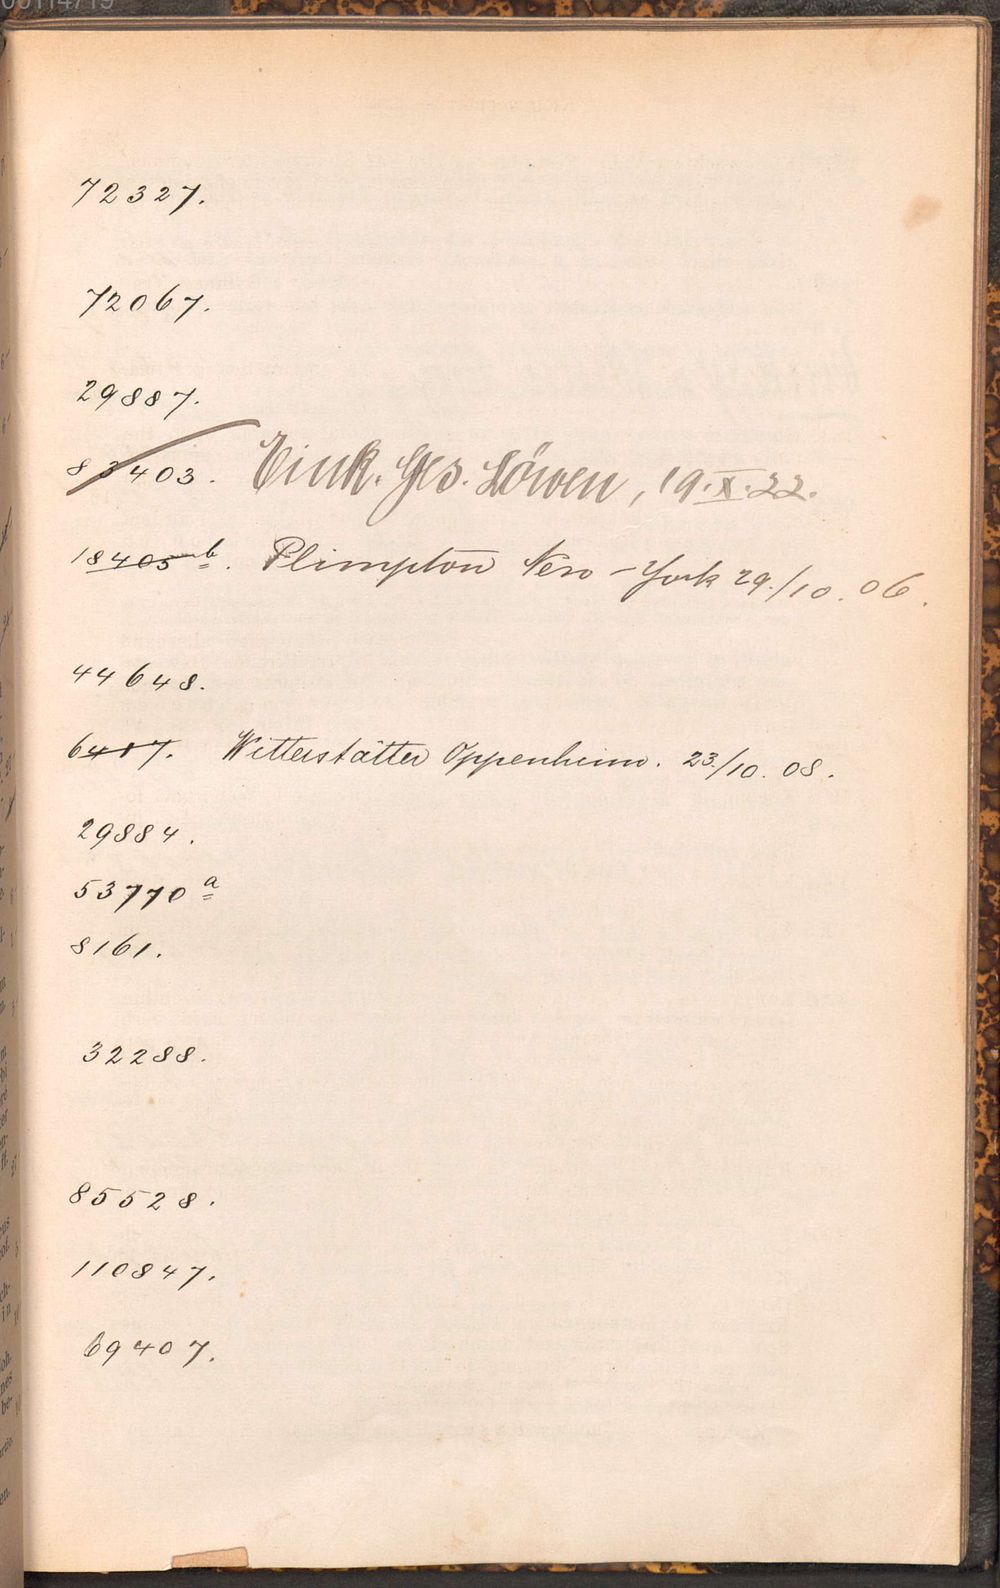 72327.
72067.
29887.
83403. Eink. Ges. Löwen, 19.X.22.
18405 b. Plimpton New-York 29./10. 06.
44648.
6417. Witterstätter Oppenheim. 23./10. 08.
29884.
53770 a
8161.
32288.
85528.
110847.
69407.